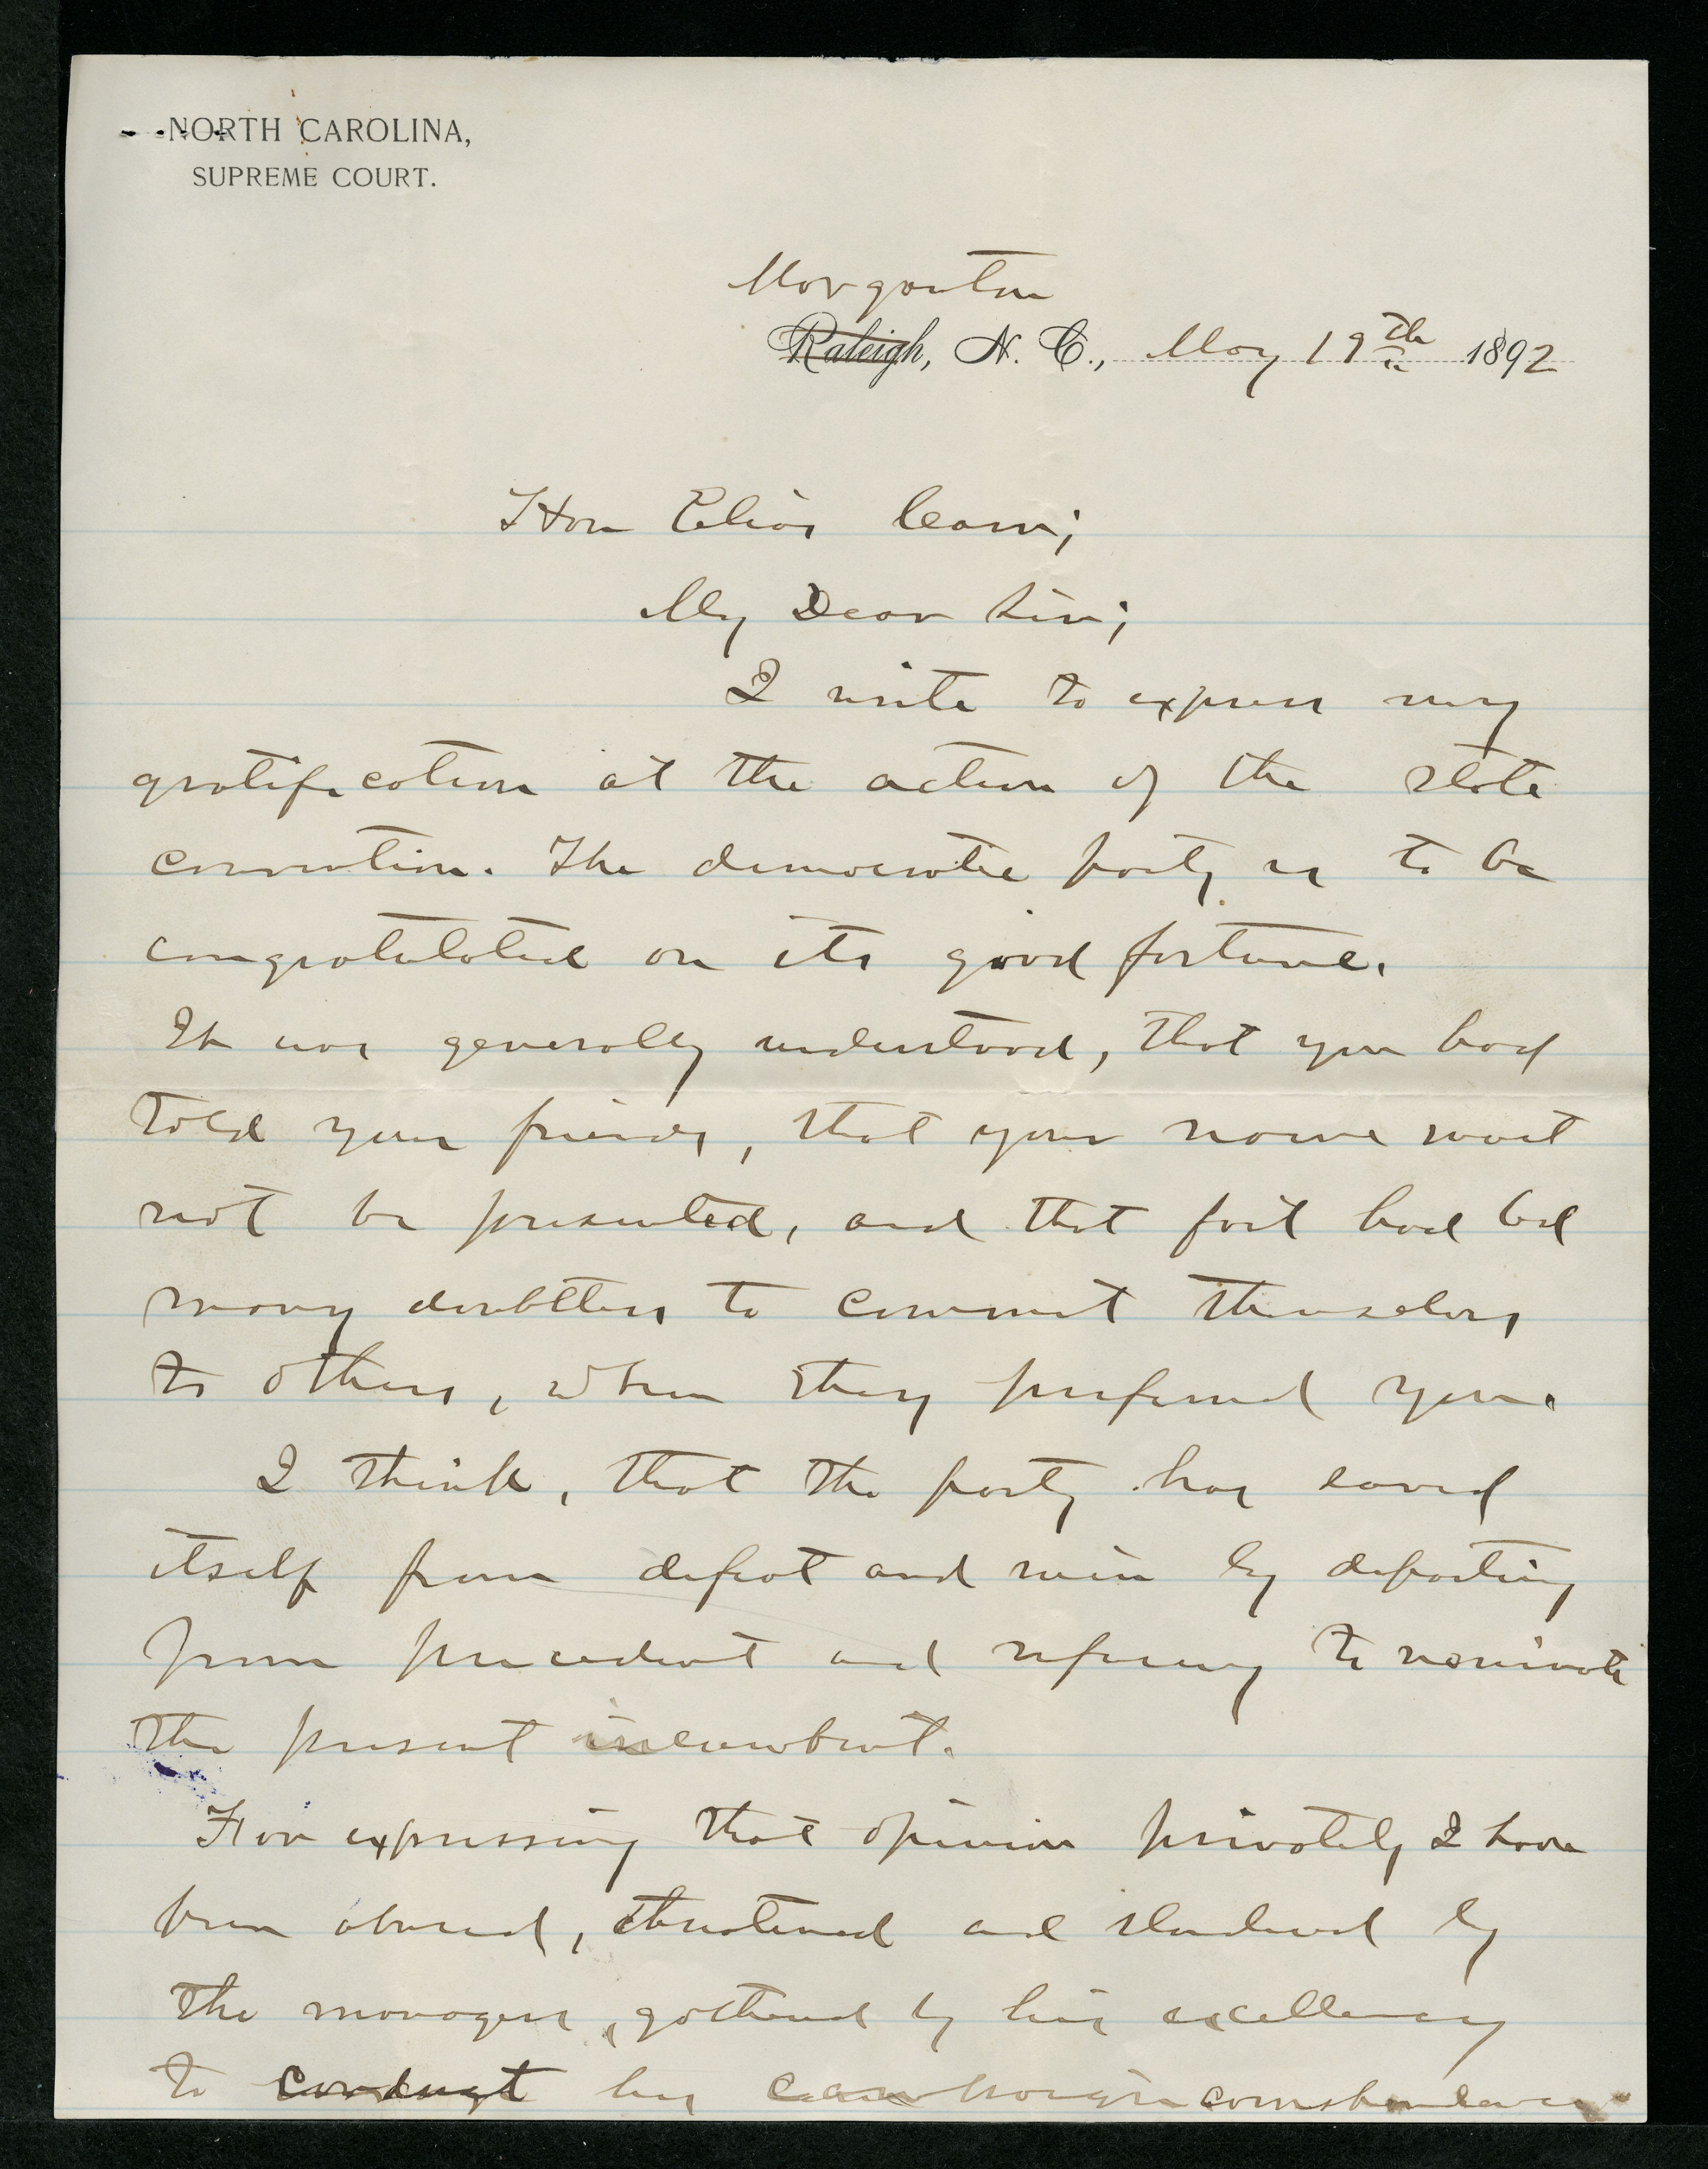 NORTH CAROLINA,
SUPREME COURT.
Morganton
Raleigh, N. C., May 19th 1892
Hon Elias Carr;
My Dear Sir;
I write to express my
gratification at the action of the state
convention. The democratic party is to be
congratulated on its good fortune.
It was generally understood, that you had
told your friends, that your name must
not be presented, and that fact had led
many doubtless to commit themselves
to others, when they preferred you.
I think, that the party has saved
itself from defeat and ruin by departing
from precedent and refusing to nominate
the present incumbent.
For expressing that opinion privately I have
been abused, threatened and slandered by
the managers, gathered by his excellency
to conduct his campaign correspondence